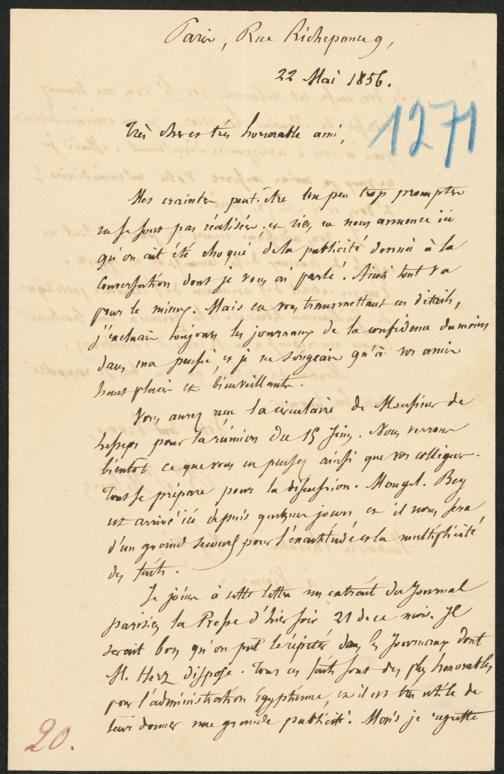 Paris, Rue Richepance 9,
22 Mai 1856.
1271
Très cher et très honorable ami,
Mes craintes peut-être un peu trop promptes
ne se sont pas réalisées; et rien ne nous annonce ici
qu'on ait été choqué de la publicité donné à la
Conversation dont je vous ai parlé. Ainsi tout va
pour le mieux. Mais en vous transmettant ces détails,
j'excluais toujours les journaux de la confidence du moins
dans ma pensée, et je ne songeais qu'à vos amis
haut placés et bienveillants.
Vous aurez reçu la circulaire de Monsieur de
Lesseps pour la réunion du 15 Juin. Nous verrons
bientôt ce que vous en pensez ainsi que vos collègues.
Tout se prépare pour la discussion. Mougel-Bey
est arrivé ici depuis quelques jours et il nous sera
d'un grand secours pour l'exactitude et la multiplicité
des faits.
Je joins à cette lettre un extrait du Journal
parisien la Presse d'hier soir 21 de ce mois. Il
serait bon qu'on pût le répéter dans les Journaux dont
M. Herz dispose. Tous ces faits sont des plus honorables
pour l'administration Egyptienne, et il est très utile de
leur donner une grande publicité. Mais je regrette
20.